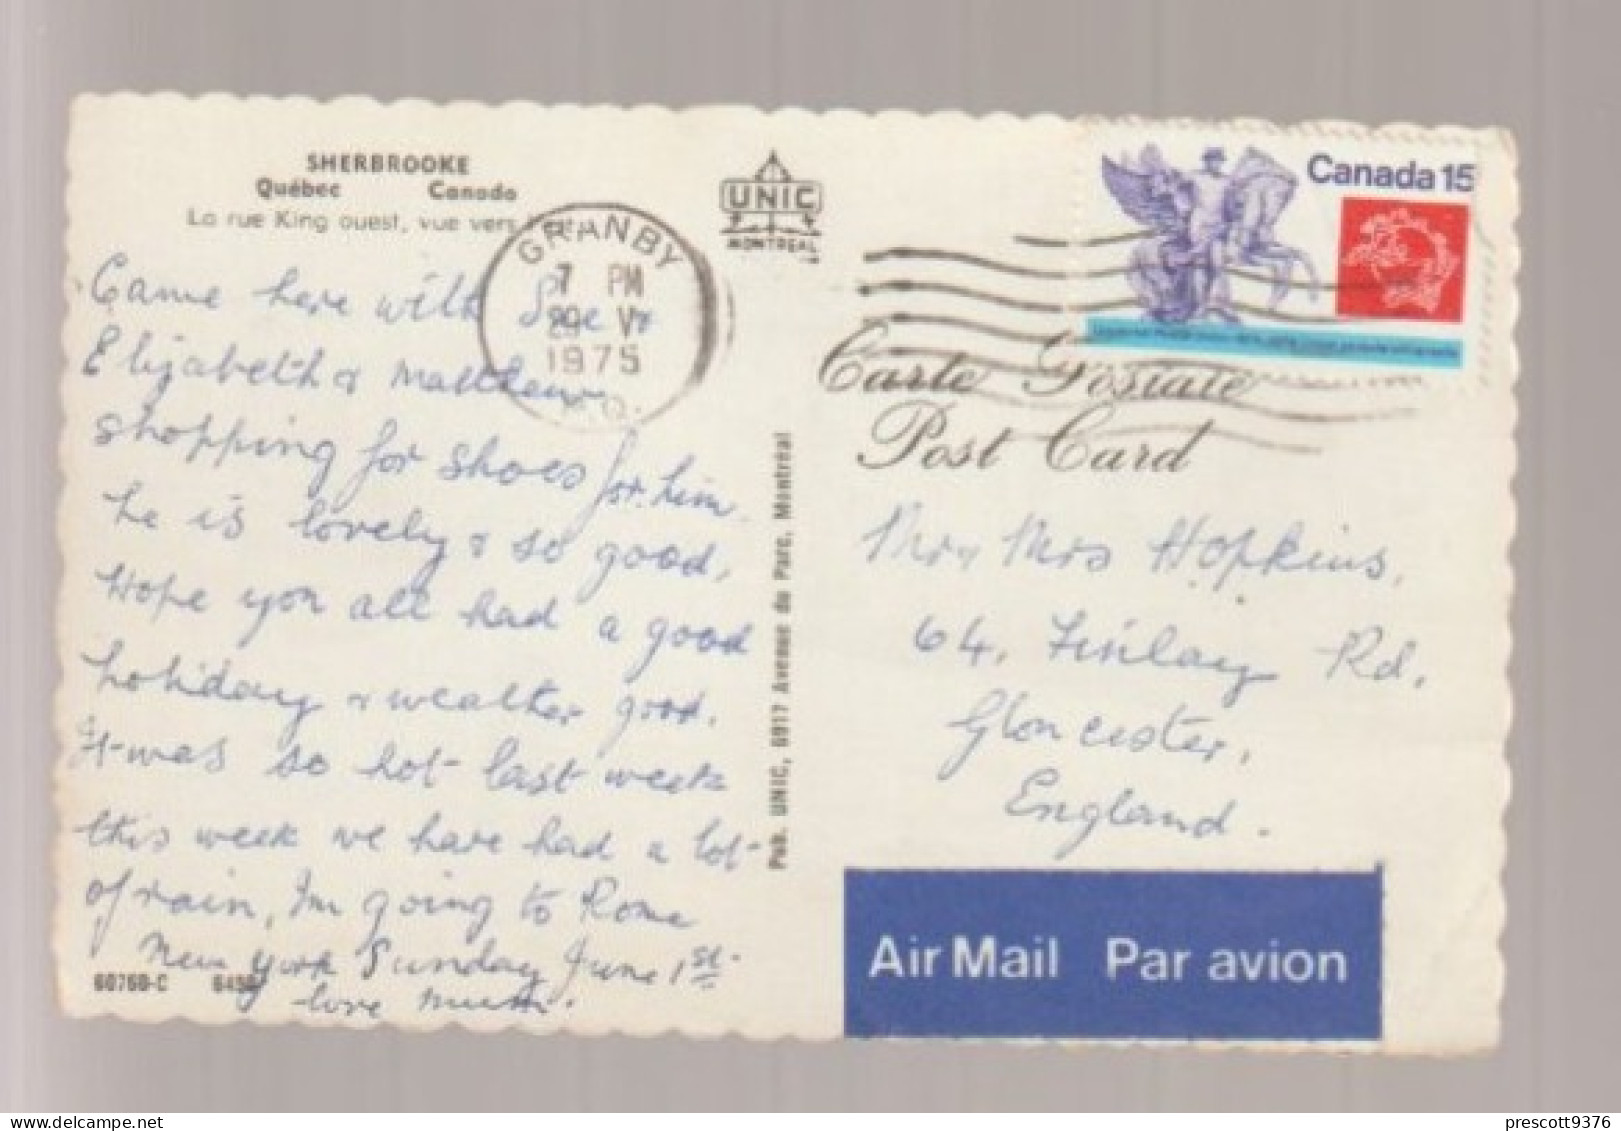 SHERBROOKE
Québec Canada
La rue King ouest, vue vers
UNIC
MONTREAL
GRANBY
7 PM
29 V
1975
Canada 15
Carte Postale
Post Card
Came here with Sue &
Elizabeth & Matthew
shopping for shoes for him
he is lovely & so good,
Hope you all had a good
holiday & weather good.
It was so hot last week
this week we have had a lot
of rain, I'm going to Rome
New York Sunday June 1st
love Mum.
60760-C
Pub. UNIC, 6917 Avenue du Parc, Montréal
Mr & Mrs Hopkins,
64, Finlay Rd,
Gloucester,
England.
Air Mail Par avion
delcampe.net
prescott9376